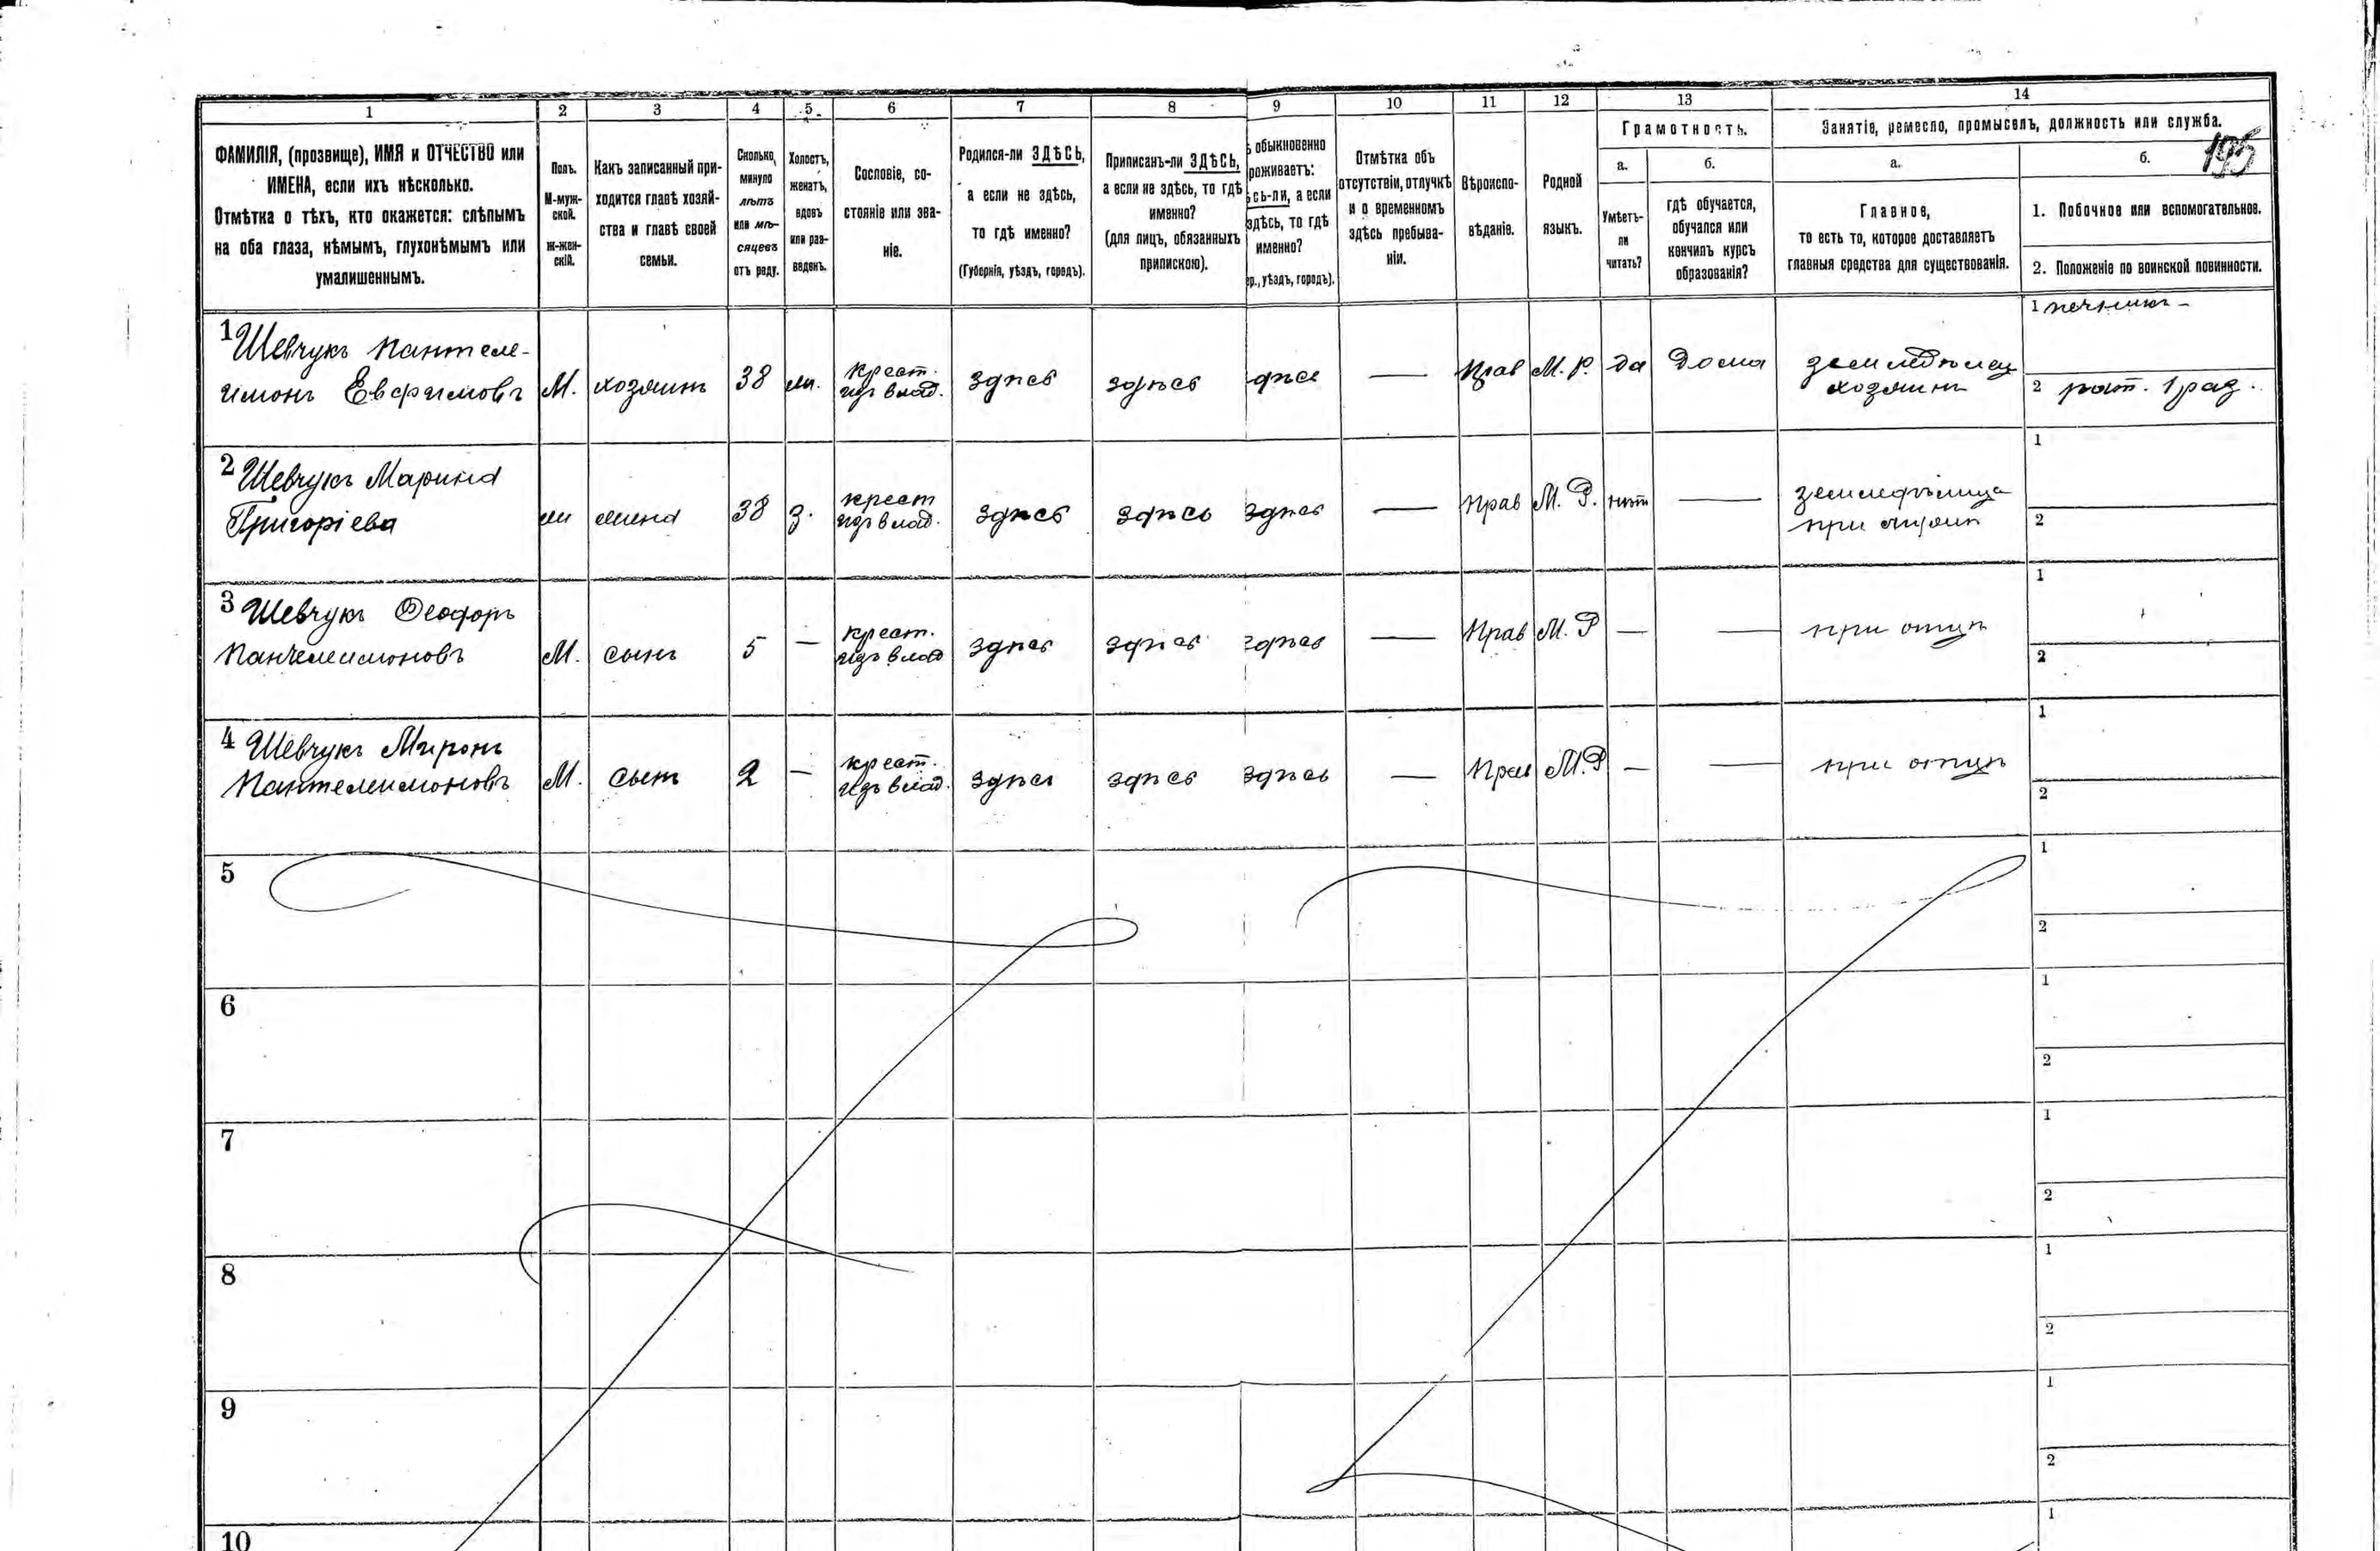 1 2 3 4 5 6 7 8 9 10 11 12 13 14
ФАМИЛІЯ, (прозвище), ИМЯ и ОТЧЕСТВО или
ИМЕНА, если ихъ нѣсколько.
Отмѣтка о тѣхъ, кто окажется: слѣпымъ
на оба глаза, нѣмымъ, глухонѣмымъ или
умалишеннымъ.
Полъ.
М-муж-
ской.
ж-жен-
скій.
Какъ записанный при-
ходится главѣ хозяй-
ства и главѣ своей
семьи.
Сколько
минуло
лѣтъ
или мѣ-
сяцевъ
отъ роду.
Холостъ,
женатъ,
вдовъ
или раз-
веденъ.
Сословіе, со-
стояніе или зва-
ніе.
Родился-ли ЗДѢСЬ,
а если не здѣсь,
то гдѣ именно?
(Губернія, уѣздъ, городъ).
Приписанъ-ли ЗДѢСЬ,
а если не здѣсь, то гдѣ
именно?
(для лицъ, обязанныхъ
припискою).
обыкновенно
роживаетъ:
сь-ли, а если
здѣсь, то гдѣ
именно?
р., уѣздъ, городъ).
Отмѣтка объ
отсутствіи, отлучкѣ
и о временномъ
здѣсь пребыва-
ніи.
Вѣроиспо-
вѣданіе.
Родной
языкъ.
Грамотность.
а.
Умѣетъ-
ли
читать?
б.
гдѣ обучается,
обучался или
кончилъ курсъ
образованія?
Занятіе, ремесло, промыселъ, должность или служба.
195
а.
Главное,
то есть то, которое доставляетъ
главныя средства для существованія.
б.
1. Побочное или вспомогательное.
2. Положеніе по воинской повинности.
1 Шевчукъ Пантеле-
имонъ Евфимовъ М. хозяинъ 38 ж. крест. изъ влад. здѣсь здѣсь дѣсь — Прав М. Р. да Дома земледѣлец хозяинъ
1 печникъ -
2 рат. 1 раз.
2 Шевчукъ Марина
Григоріева ж жена 38 з. крест изъ влад. здѣсь здѣсь здѣсь — Прав М. Р. нѣт — земледѣлица при мужѣ
1
2
3 Шевчукъ Феодоръ
Пантелимоновъ М. сынъ 5 — крест. изъ влад здѣсь здѣсь здѣсь — Прав М. Р — — при отцѣ
1
2
4 Шевчукъ Миронъ
Пантелеимоновъ М. сынъ 2 — крест. изъ влад. здѣсь здѣсь здѣсь — Прав М. Р — — при отцѣ
1
2
5
1
2
6
1
2
7
1
2
8
1
2
9
1
2
10
1